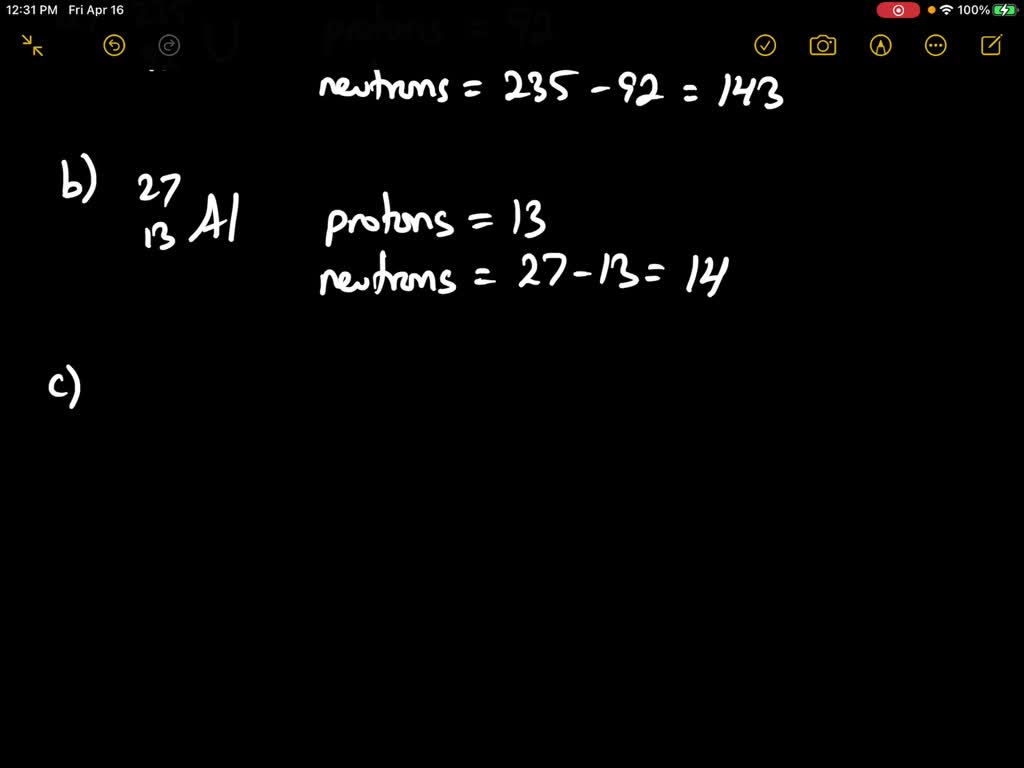 12:31 PM Fri Apr 16 100%
235
U protons = 92
neutrons = 235 - 92 = 143
b) 27
13 Al protons = 13
neutrons = 27 - 13 = 14
c)